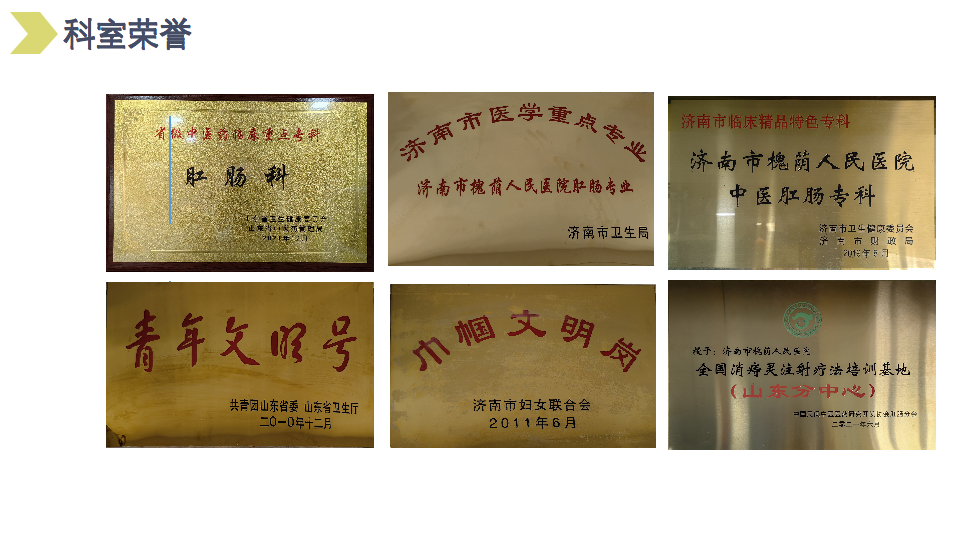 科室荣誉
省级中医药临床重点专科
肛肠科
济南市医学重点专业
济南市槐荫人民医院肛肠专业
济南市卫生局
济南市临床精品特色专科
济南市槐荫人民医院
中医肛肠专科
济南市卫生健康委员会
济南市财政局
青年文明号
共青团山东省委 山东省卫生厅
二〇一〇年十二月
巾帼文明岗
济南市妇女联合会
2011年6月
授予：济南市槐荫人民医院
全国消痔灵注射疗法培训基地
（山东分中心）